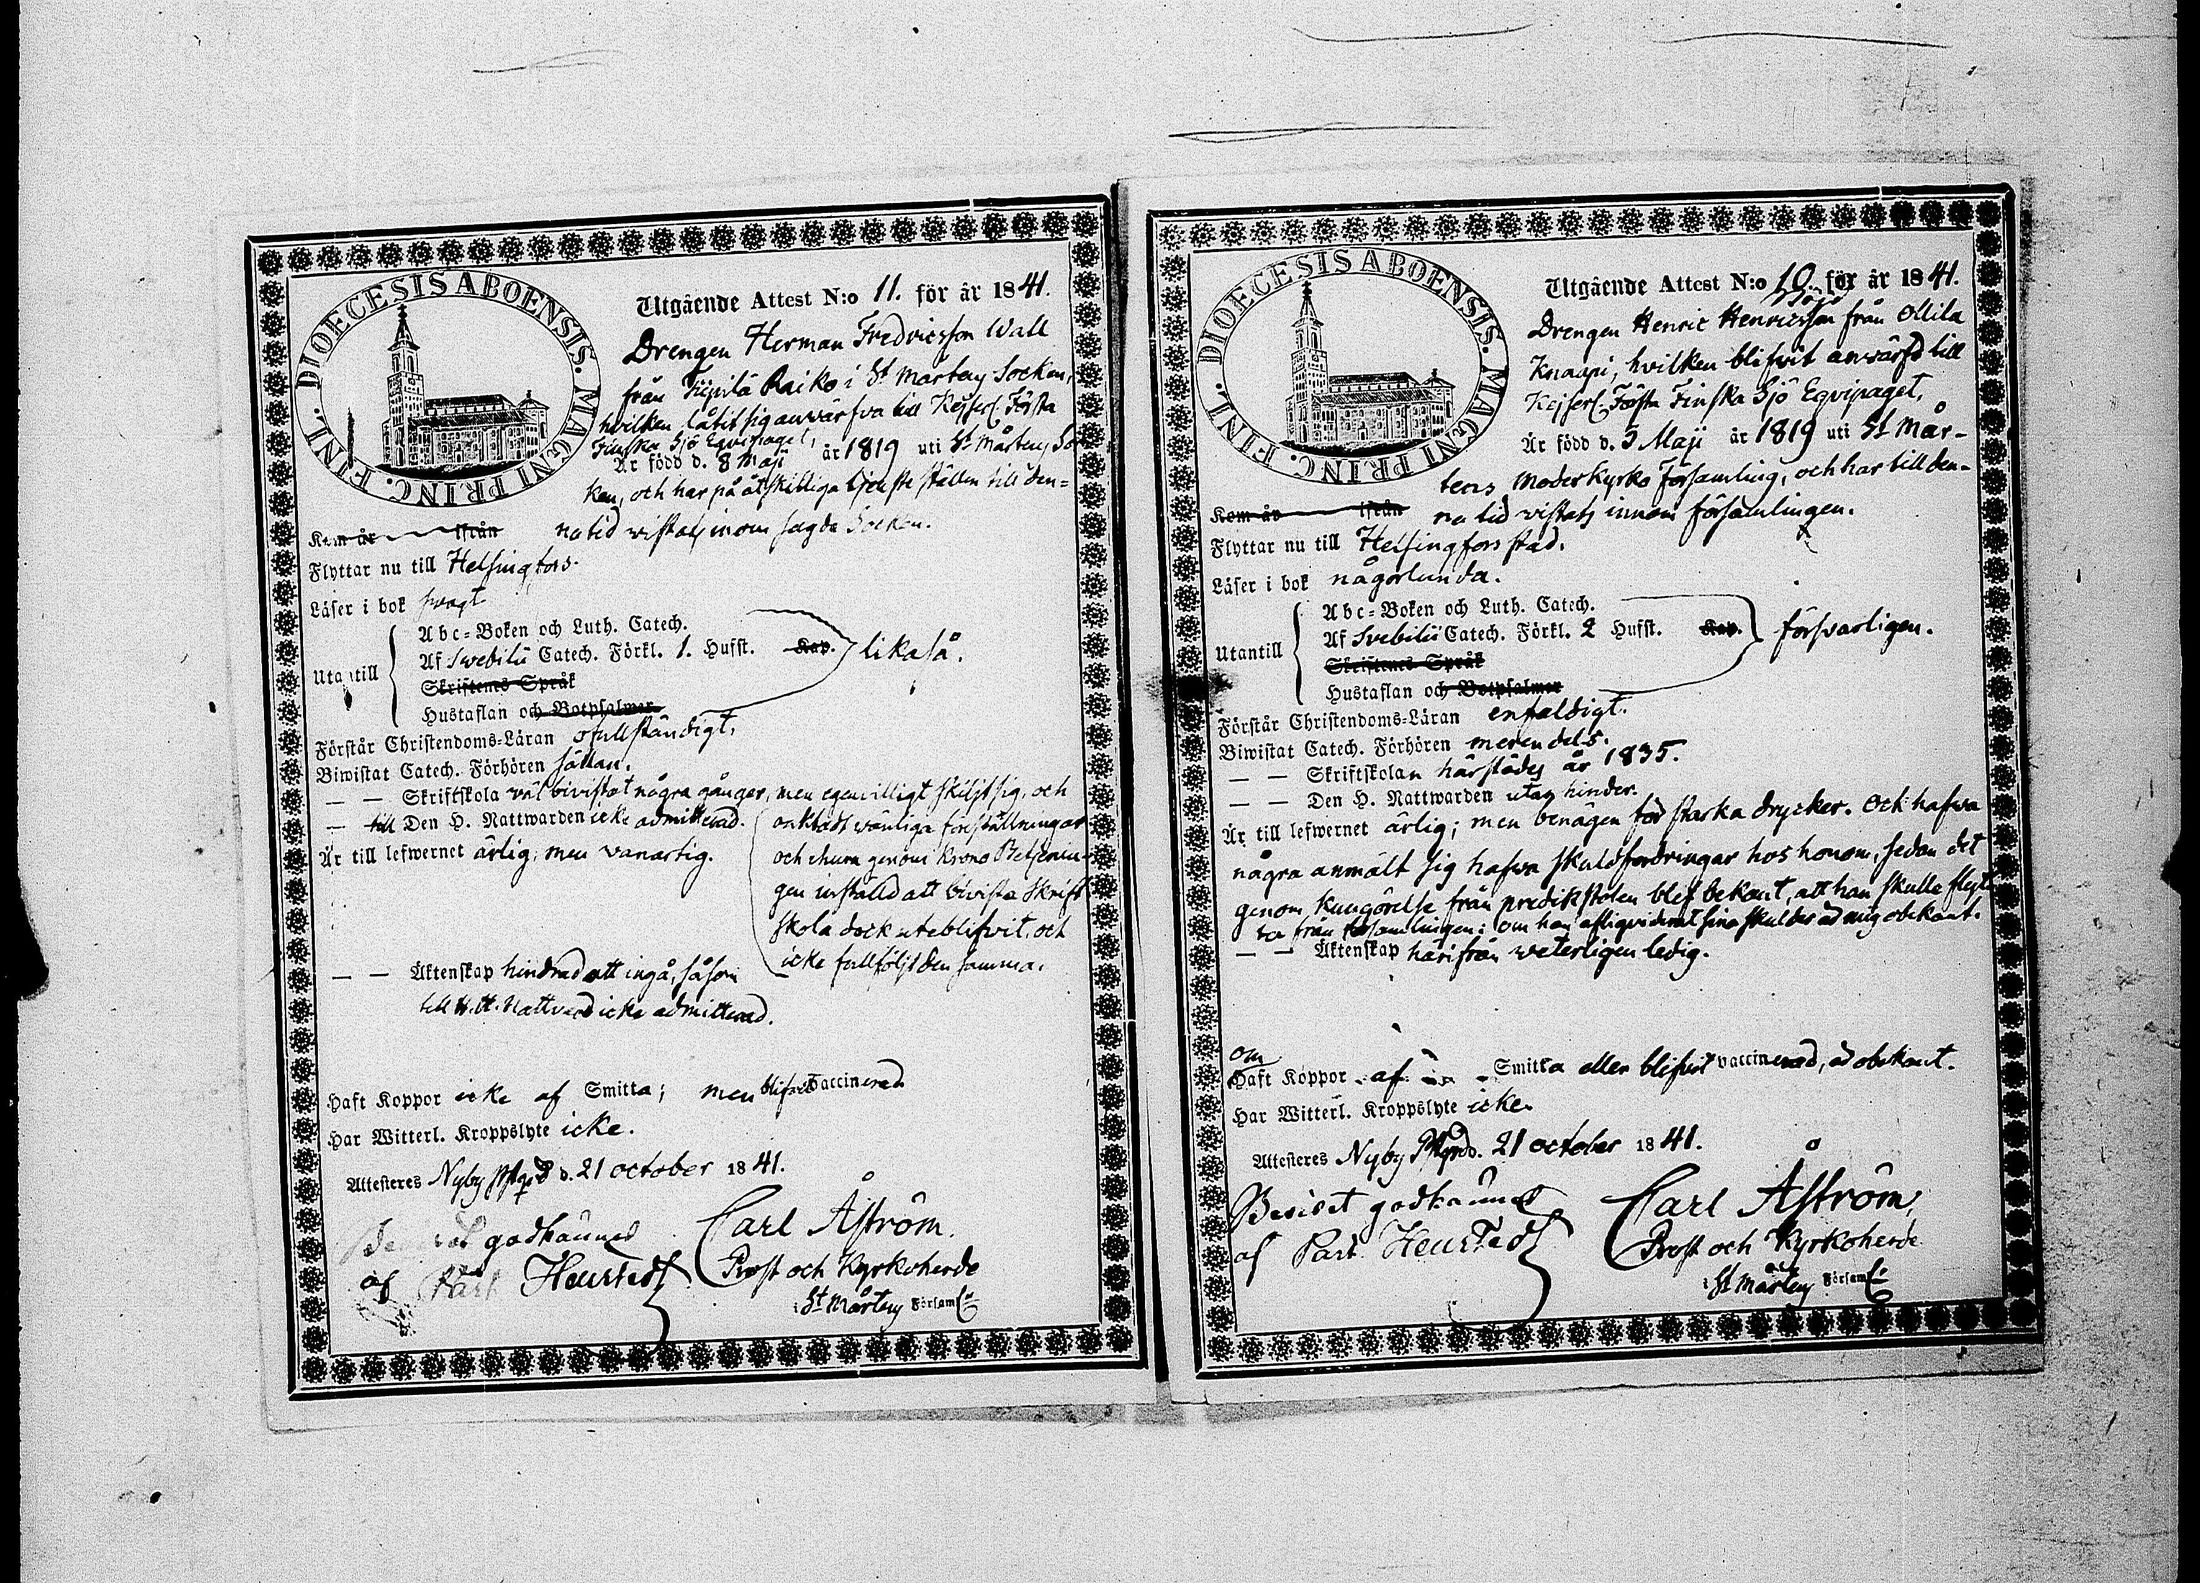 DIOECESIS ABOENSIS. MAGNI PRINC. FINL.
Utgående Attest N:o 11. för år 1841.
Drengen Herman Fredricsson Wall
från Raiko i St Mårtens Socken,
hvilken låtit sig anwärfva till Kejserl. Första
Finska Sjö Eqvipaget,
Är född d. 8 Maji år 1819 uti St Mårtens Soc
ken, och har på åtskilliga tjenste ställen till den=
Kom år ifrån na tid vistats inom sagda Socken.
Flyttar nu till Helsingfors.
Läser i bok svagt
Abc=Boken och Luth. Catech.
Utantill Af Svebilii Catech. Förkl. 1. Hufst. Kap. likaså.
Skriftenes Språk
Hustaflan och Botpsalmer
Förstår Christendoms=Läran ofullständigt.
Biwistat Catech. Förhören sällan.
— — Skriftskola väl bivistat några gånger, men egenvilligt skiljt sig, och
— till Den H. Nattwarden icke admitterad. oaktadt vänliga föreställningar
Är till lefwernet ärlig; men vanartig. och ehuru genom Krono Betjenin-
gen inställd att bivista Skrift
skola dock uteblifvit, och
icke fullföljt den samma.
— — Äktenskap hindrad att ingå, såsom
till H. H. Nattvard icke admitterad.
Haft Koppor icke af Smitta; men blifvit vaccinerad
Har Witterl. Kroppslyte icke.
Attesteres Nyby d. 21 october 1841.
godkänned
af Past. Heurstedt
Carl Åström.
Prost och Kyrkoherde
i St Mårtens Församl.
DIOECESIS ABOENSIS. MAGNI PRINC. FINL.
Utgående Attest N:o 10. för år 1841.
Drengen Henric Henricsson från Ollila
Knaapi, hvilken blifvit anwärfd till
Kejserl. Första Finska Sjö Eqvipaget,
Är född d. 3 Maji år 1819 uti St Mår-
tens Moderkyrko Församling, och har till den-
Kom år ifrån na tid vistats innom församlingen.
Flyttar nu till Helsingfors stad.
Läser i bok någorlunda.
Abc=Boken och Luth. Catech.
Utantill Af Svebilii Catech. Förkl. 2 Hufst. Kap. försvarligen.
Skriftenes Språk
Hustaflan och Botpsalmer
Förstår Christendoms=Läran enfaldigt.
Biwistat Catech. Förhören merendels.
— — Skriftskolan härstädes år 1835.
— — Den H. Nattwarden utan hinder.
Är till lefwernet ärlig; men benägen för starka drycker. Och hafva
några anmält sig hafva skuldfordringar hos honom, sedan det
genom kungörelse från predikstolen blef bekant, att han skulle flyt
ta från församlingen; om han afliqviderat sina skulder är mig obekant.
— — Äktenskap härifrån weterligen ledig.
om
Haft Koppor af Smitta eller blifvit vaccinerad, är obekant.
Har Witterl. Kroppslyte icke.
Attesteres Nyby d. 21 october 1841.
godkänned
af Past. Heurstedt
Carl Åström,
Prost och Kyrkoherde
i St Mårtens Församl.